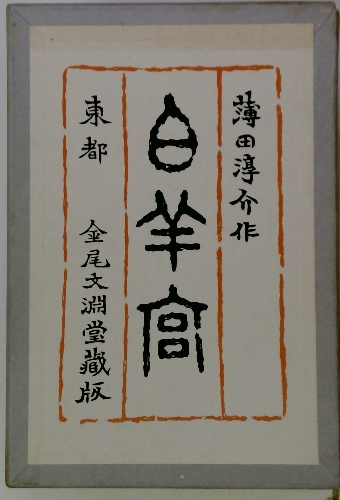 薄田淳介作
白羊宮
東都 金尾文淵堂藏版